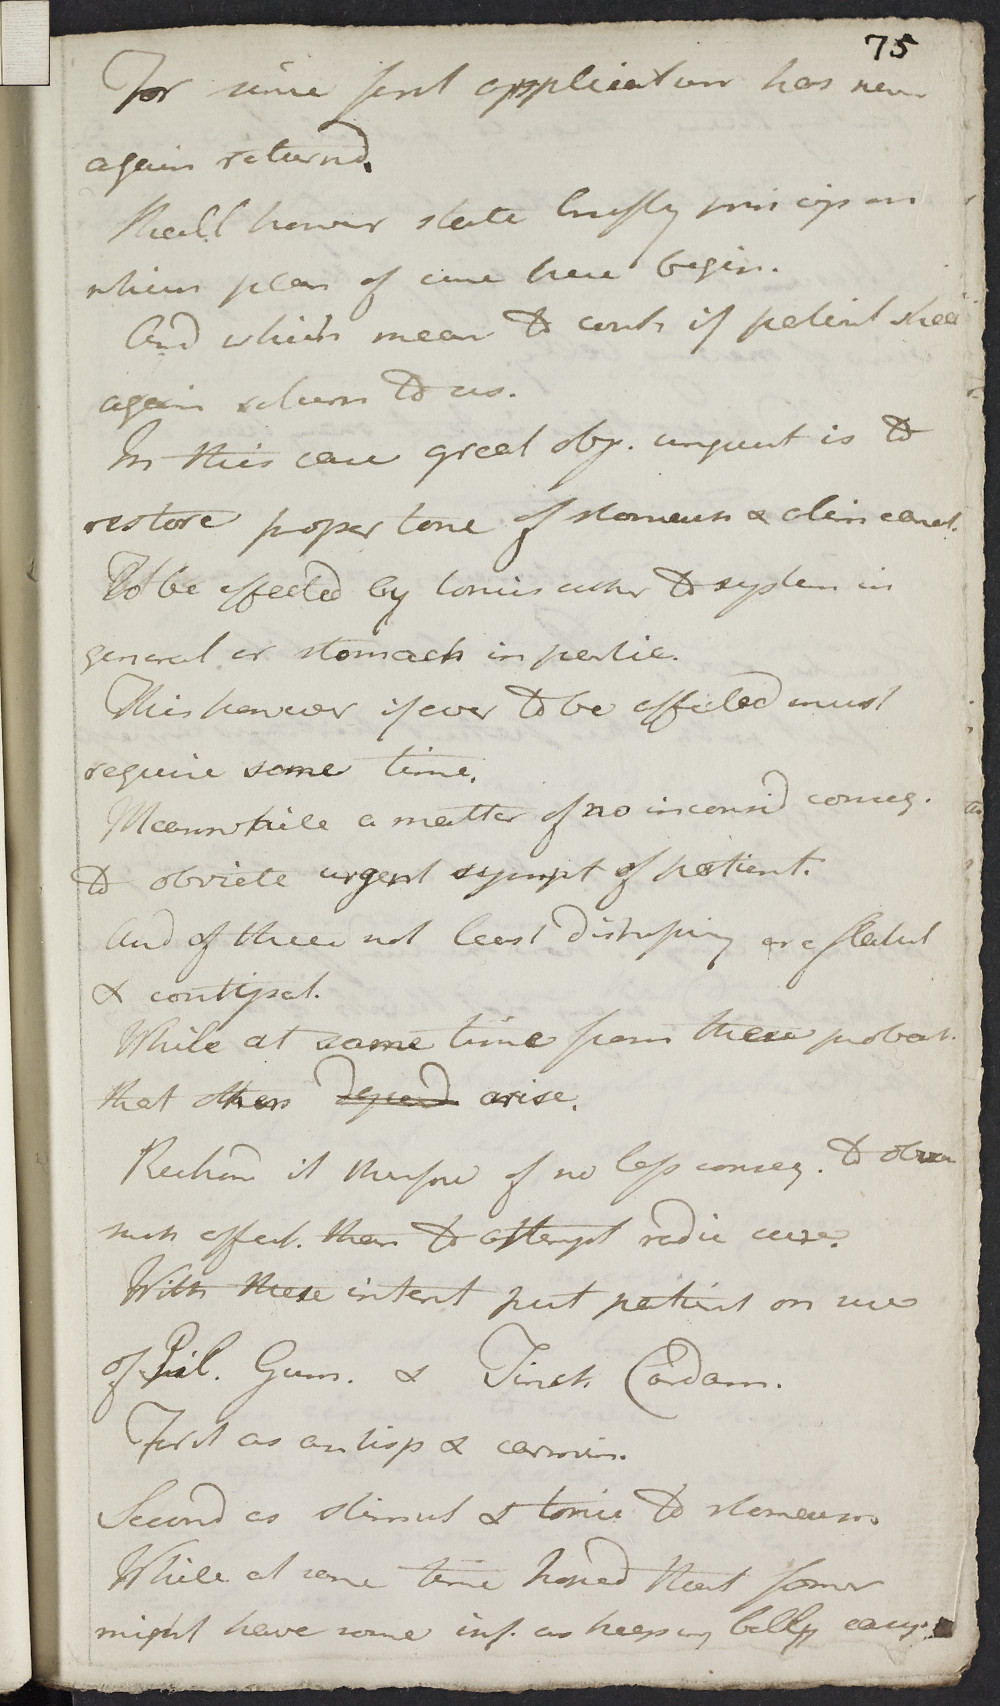 75
For since first application has never
again returnd.
Shall howevr state briefly princip on
which plan of cure here begin.
And which mean to contin if patient shall
again return to us.
In this case great obj. unquest is to
restore proper tone of stomach & alim canal.
To be effected by tonics either to system in
general or stomach in partic.
This however if ever to be effected must
require some time.
Meanwhile a matter of no inconsid conseq.
to obviate urgent sympt of patient.
And of these not least distressing are flatul
& constipat.
While at same time from these probab.
that others depend arise.
Reckond it therefore of no less conseq. to obviate
such effect. than to attempt radic cure.
With these intent put patient on use
of Pil. Gum. & Tinct. Cardam.
First as antisp & carmin.
Second as stimul & tonic to stomach.
While at same time hoped that former
might have some inf. as keeping belly easy.